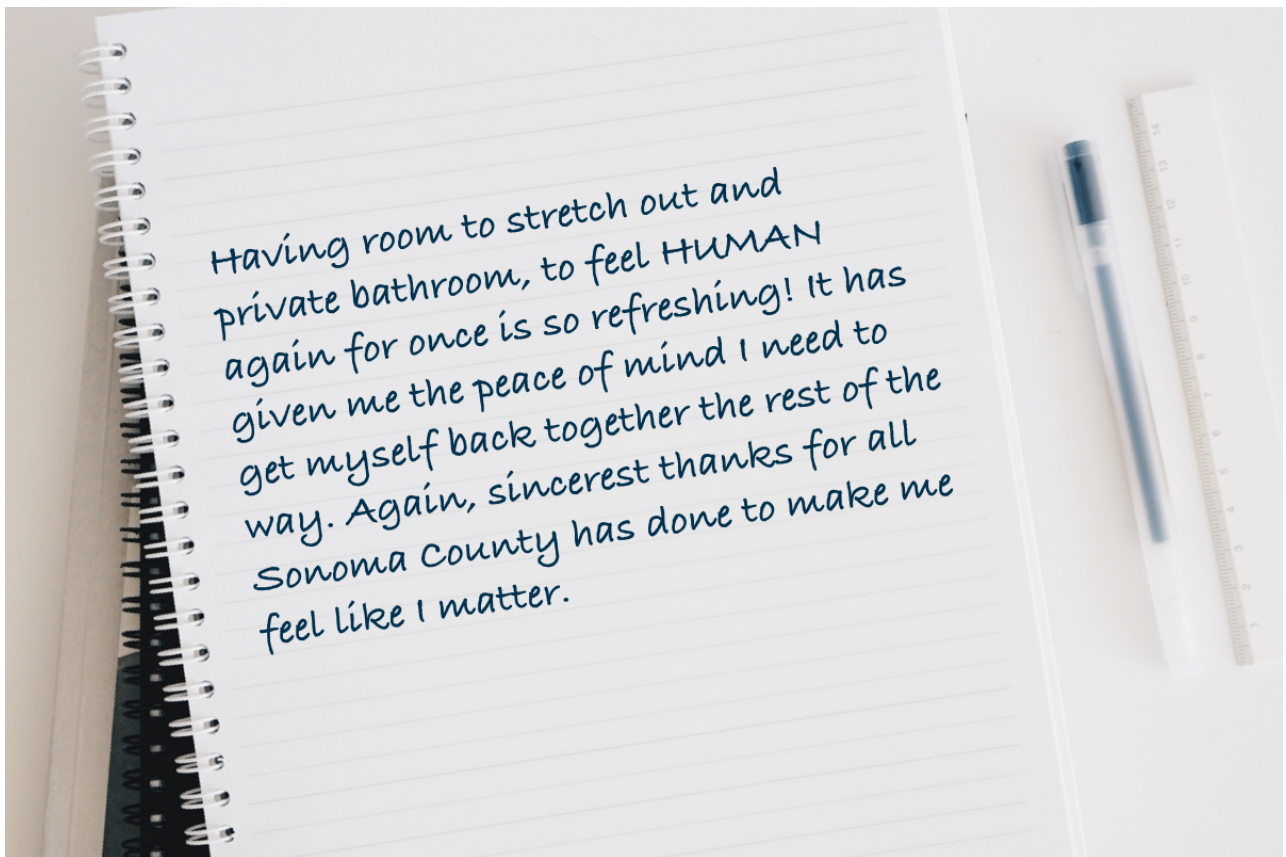 Having room to stretch out and
private bathroom, to feel HUMAN
again for once is so refreshing! It has
given me the peace of mind I need to
get myself back together the rest of the
way. Again, sincerest thanks for all
Sonoma County has done to make me
feel like I matter.
14
13
12
11
10
9
8
7
6
5
4
3
2
1